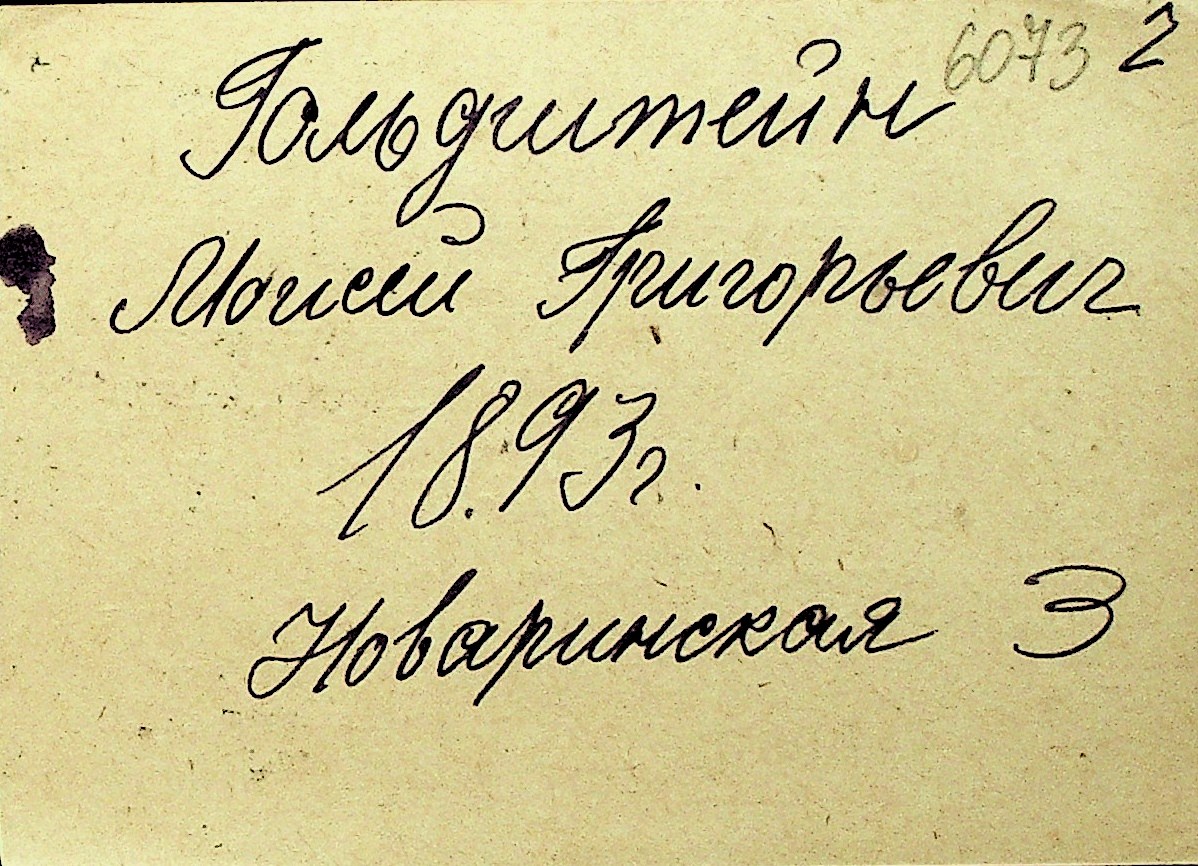 6073 2
Гольдштейн
Моисей Григорьевич
1893г.
Новаринская 3